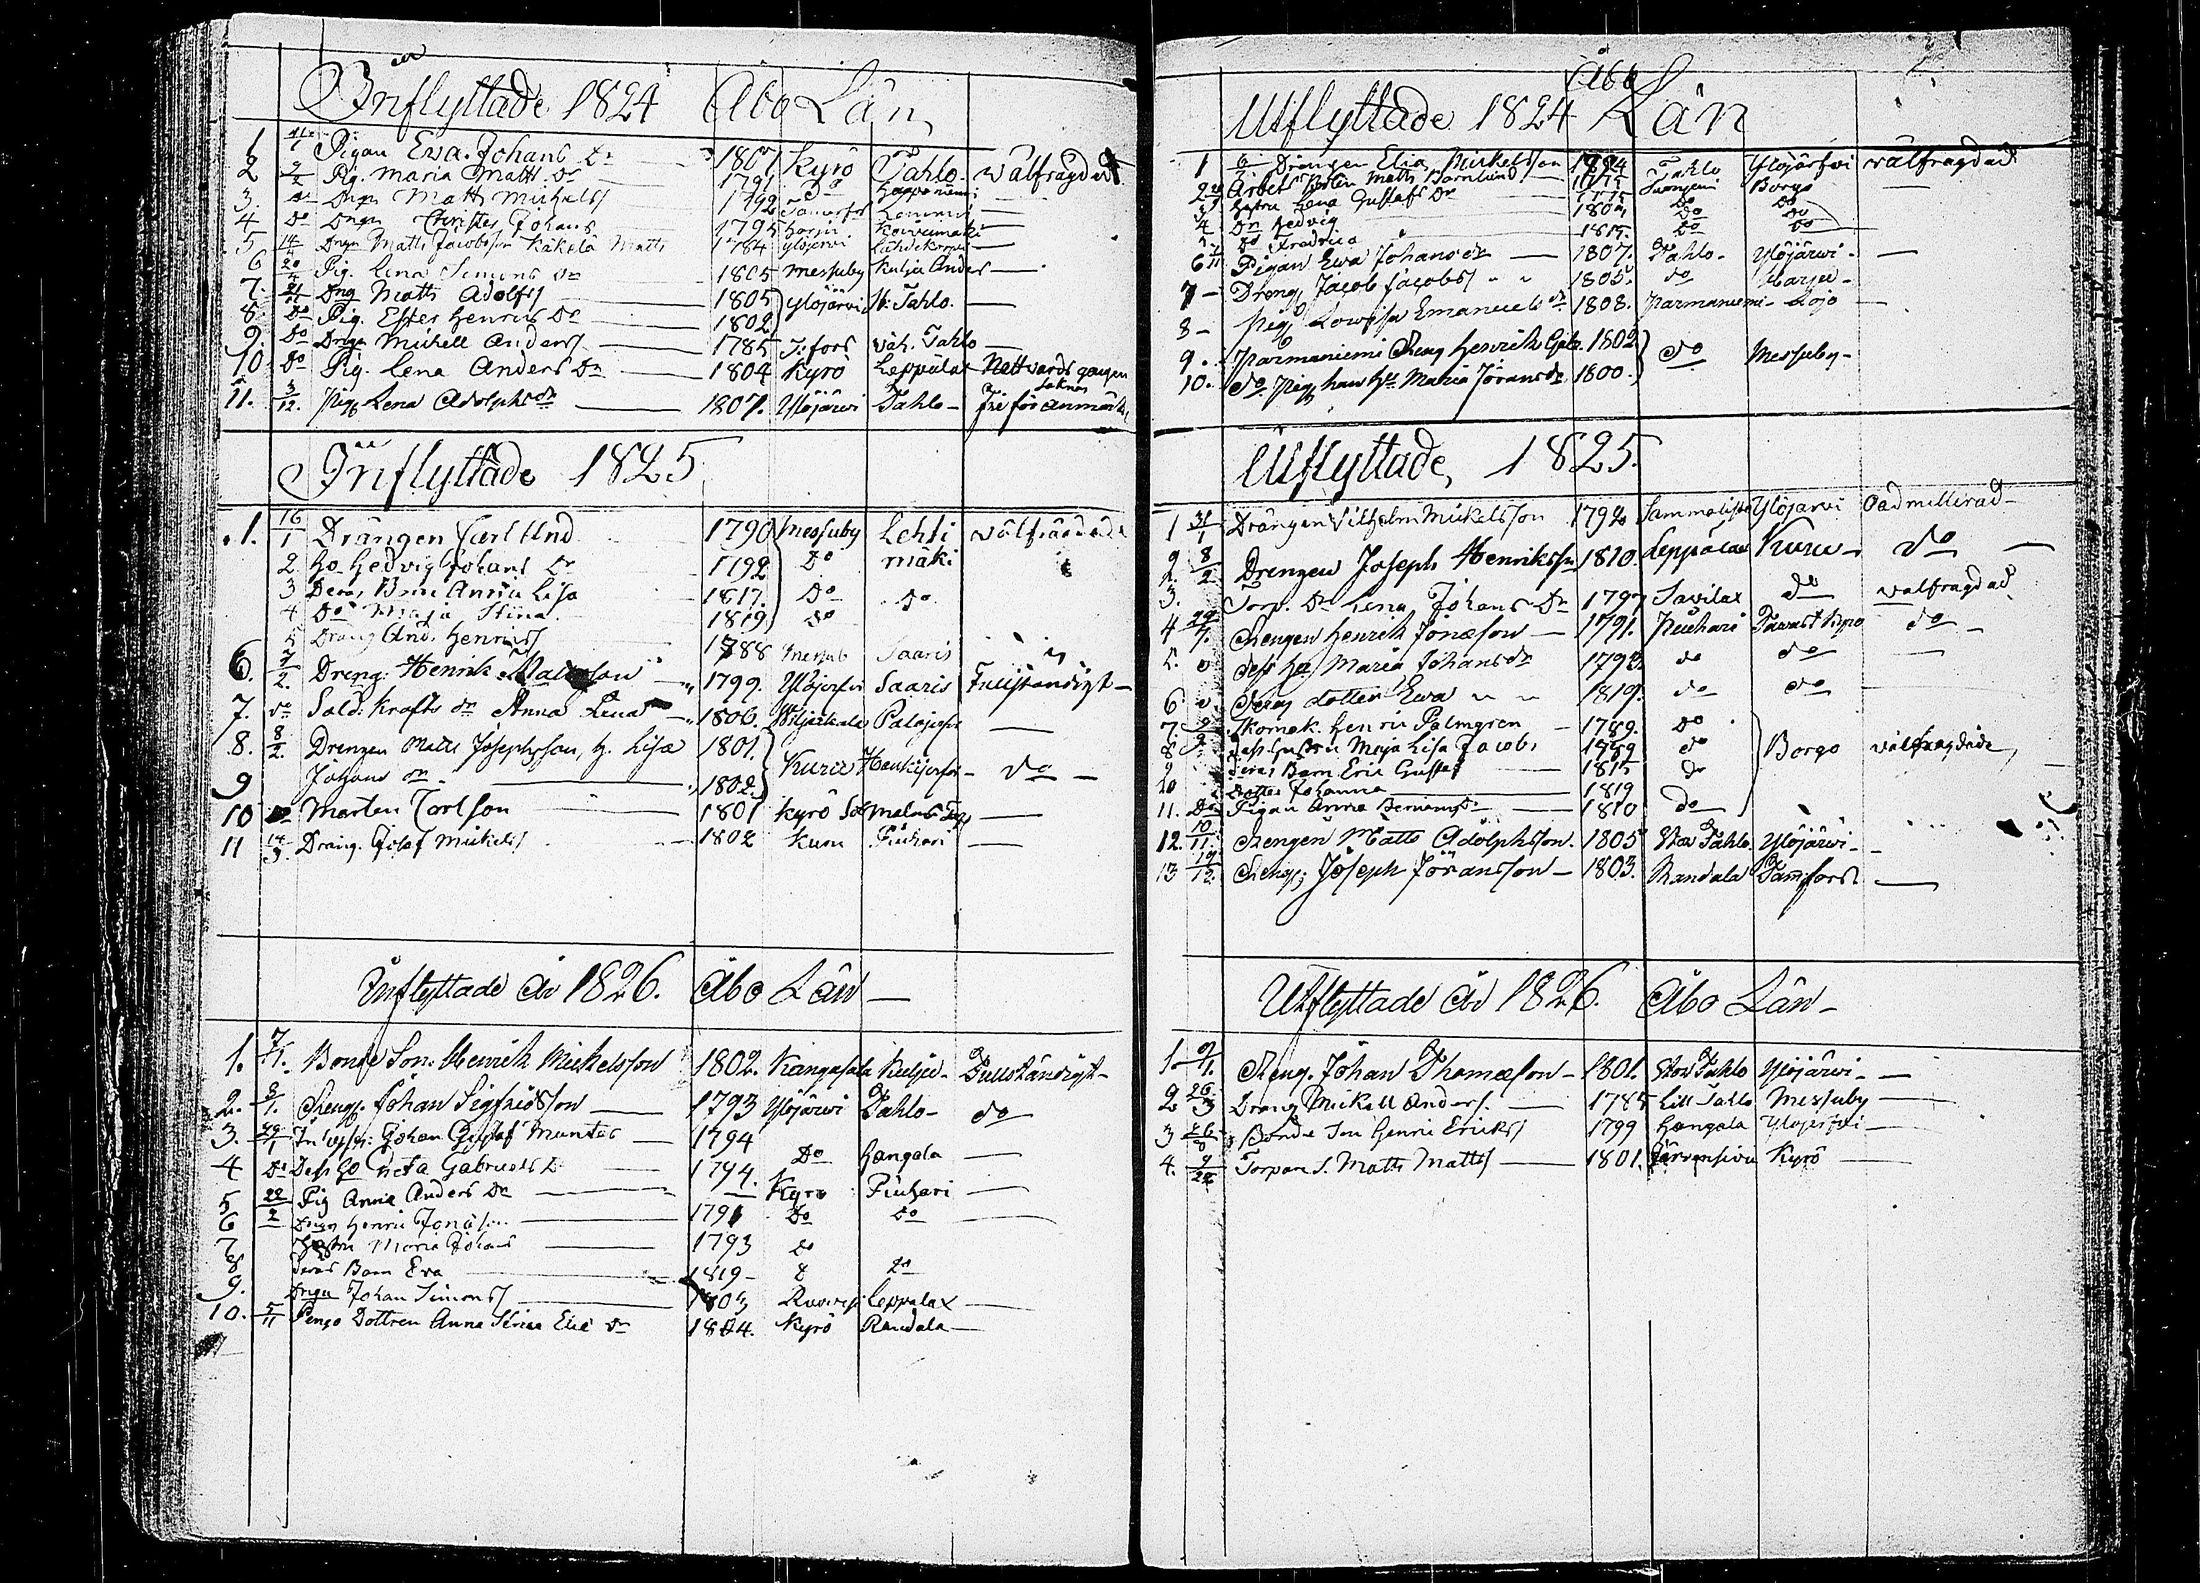 Inflyttade 1824 Åbo Län
1 Pigan Eva Johans Dr 1807 Kyrö Tahlo välfrägdad
2 Pig. Maria Matts Dr 1791 Do
3. Do Drgn Matts Mickelss 1792
4 Do Drgn Christer Johans 1795
5 14/4 Drgn Matts Jacobsson Käkelä Matts 1784 Ylöjervi
6 20/4 Pig. Lena Simons Dr 1805 Messuby Kulju Anders
7. Drng Matts Adolfss 1805 Ylöjärvi W. Tahlo
8 Do Pig. Ester Henrics Dr 1802
9. Do Drgn Michell Anderss 1785 T:fors Wäh. Tahlo
10 Do Pig. Lena Anders Dr 1804 Kyrö Leppälax Nattvards gången
11. 3/12. Pig. Lena Adolphs Dr 1807. Ylöjärwi Tahlo
Inflyttade 1825
1. 16/1 Drängen Carl Lind 1790 Messuby Lehti välfrägdade
2. Ho Hedvig Johans Dr 1792 Do mäki
3 Deras Barn Anna Lisa 1817. Do Do
4 Do Maja Stina 1819 Do
5 Dräng And. Henricss 1788 Messub Saaris
6. 7/2. Dreng. Henrik Mattsson 1799. Ylöjerfvi Saaris Fullständigt
7. do Sold. Krafts Dr Anna Lena 1806.
8. 8/2. Drengen Matts Josephsson, h. Lisa 1801.
9 Johans Dr 1802. Kuru Do
10 Do Marten Carlson 1801 Kyrö
11 14/3 Dräng. Josef Mickelss 1802 Kuru Piuhari
Inflyttade År 1826. Åbo Län
1. 7/1. Bonde Son. Henrik Mickelsson 1802. Kangasala Kulju Fullständigt
2. 8/1. Dreng. Johan Sigfridsson 1793 Ylöjärwi Tahlo do
3. Johan Gustaf Munter 1794 Do Hangala
4 Do Dess Ho Greta Gabriels Dr 1794.
5 22/2 Pig Anna Anders Dr Kyrö Piuhari
6 Drgn Henric Jonäson 1791 Do Do
7 Hustru Maria Johans 1793 Do
8 Deras Barn Eva 1819 Do
9. Drgn Johan Simonss 1803 Ruovesi Leppälax
10. 5/11 Anna Stina Elie Dr 1804. Kyrö Randala
Utflyttade 1824 Åbo Län
1 Drängen Elia Mickelsson 1794 Tahlo Ylöjärfvi välfragdad
2 Matts Barnlund Borgo
3 Hustru Lena Gustafs Dr Do Do
4 Dr Hedvig Do Do
5 Do Fredrica 1815. Do Do
6 Pigan Ewa Johans Dr 1807. Tahlo Ylöjärwi
7 Dreng Jacob Jacobss 1805. do Harju
8 Pig Lowisa Emanuels Dr 1808. Parmaniemi Lojo
9. Parmaniemi Dreng Henrik Gabr. 1802 do Messuby
10. do Pig hans Hu Maria Jörans Dr 1800.
Utflyttade 1825.
1 31/1 Drängen Vilhelm Mickelsson Ylöjarvi Oadmitterad
2. 8/2 Drengen Joseph Henriksson 1810. Leppälax Kuru do
3. Torp. Dr Lena Johans Dr 1797 Savilax do valfragdad
4 Drengen Henrik Jönason 1791. Piuhari Tavast Kyro do
5. Dess Hu Maria Johans Dr 1793. do do
6 Deras dotter Ewa 1819. do do
7. Skomak. Henric Palmgren 1789. Do
8 Dess Hustru Maja Lisa Jacobs 1789 do Borgo välfragdade
9 Deras Barn Eric Gustaf 1815 do
10 Dotter Johanna 1819
11. Do Pigan Anna 1810 do
12. 10/11. Drengen Matts Adolphsson. 1805 Stor Tahlo Ylöjärwi
13 19/12. Dreng. Joseph Jöransson 1803. Randala Tammfors
Utflyttade År 1826. Åbo Län
1. 9/1. Dreng. Johan Thomason 1801. Stor Tahlo Ylöjärwi
2 26/3 Dräng Mickell Anders. 1785 Lill Tahlo Messuby
3 Bonde Son Henric Ericss 1799 Hangala Ylöjerfvi
4. Torpare S. Matts Mattss 1801. Järvensivu Kyrö